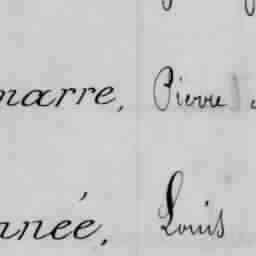 marre, Pierre
nnée, Louis